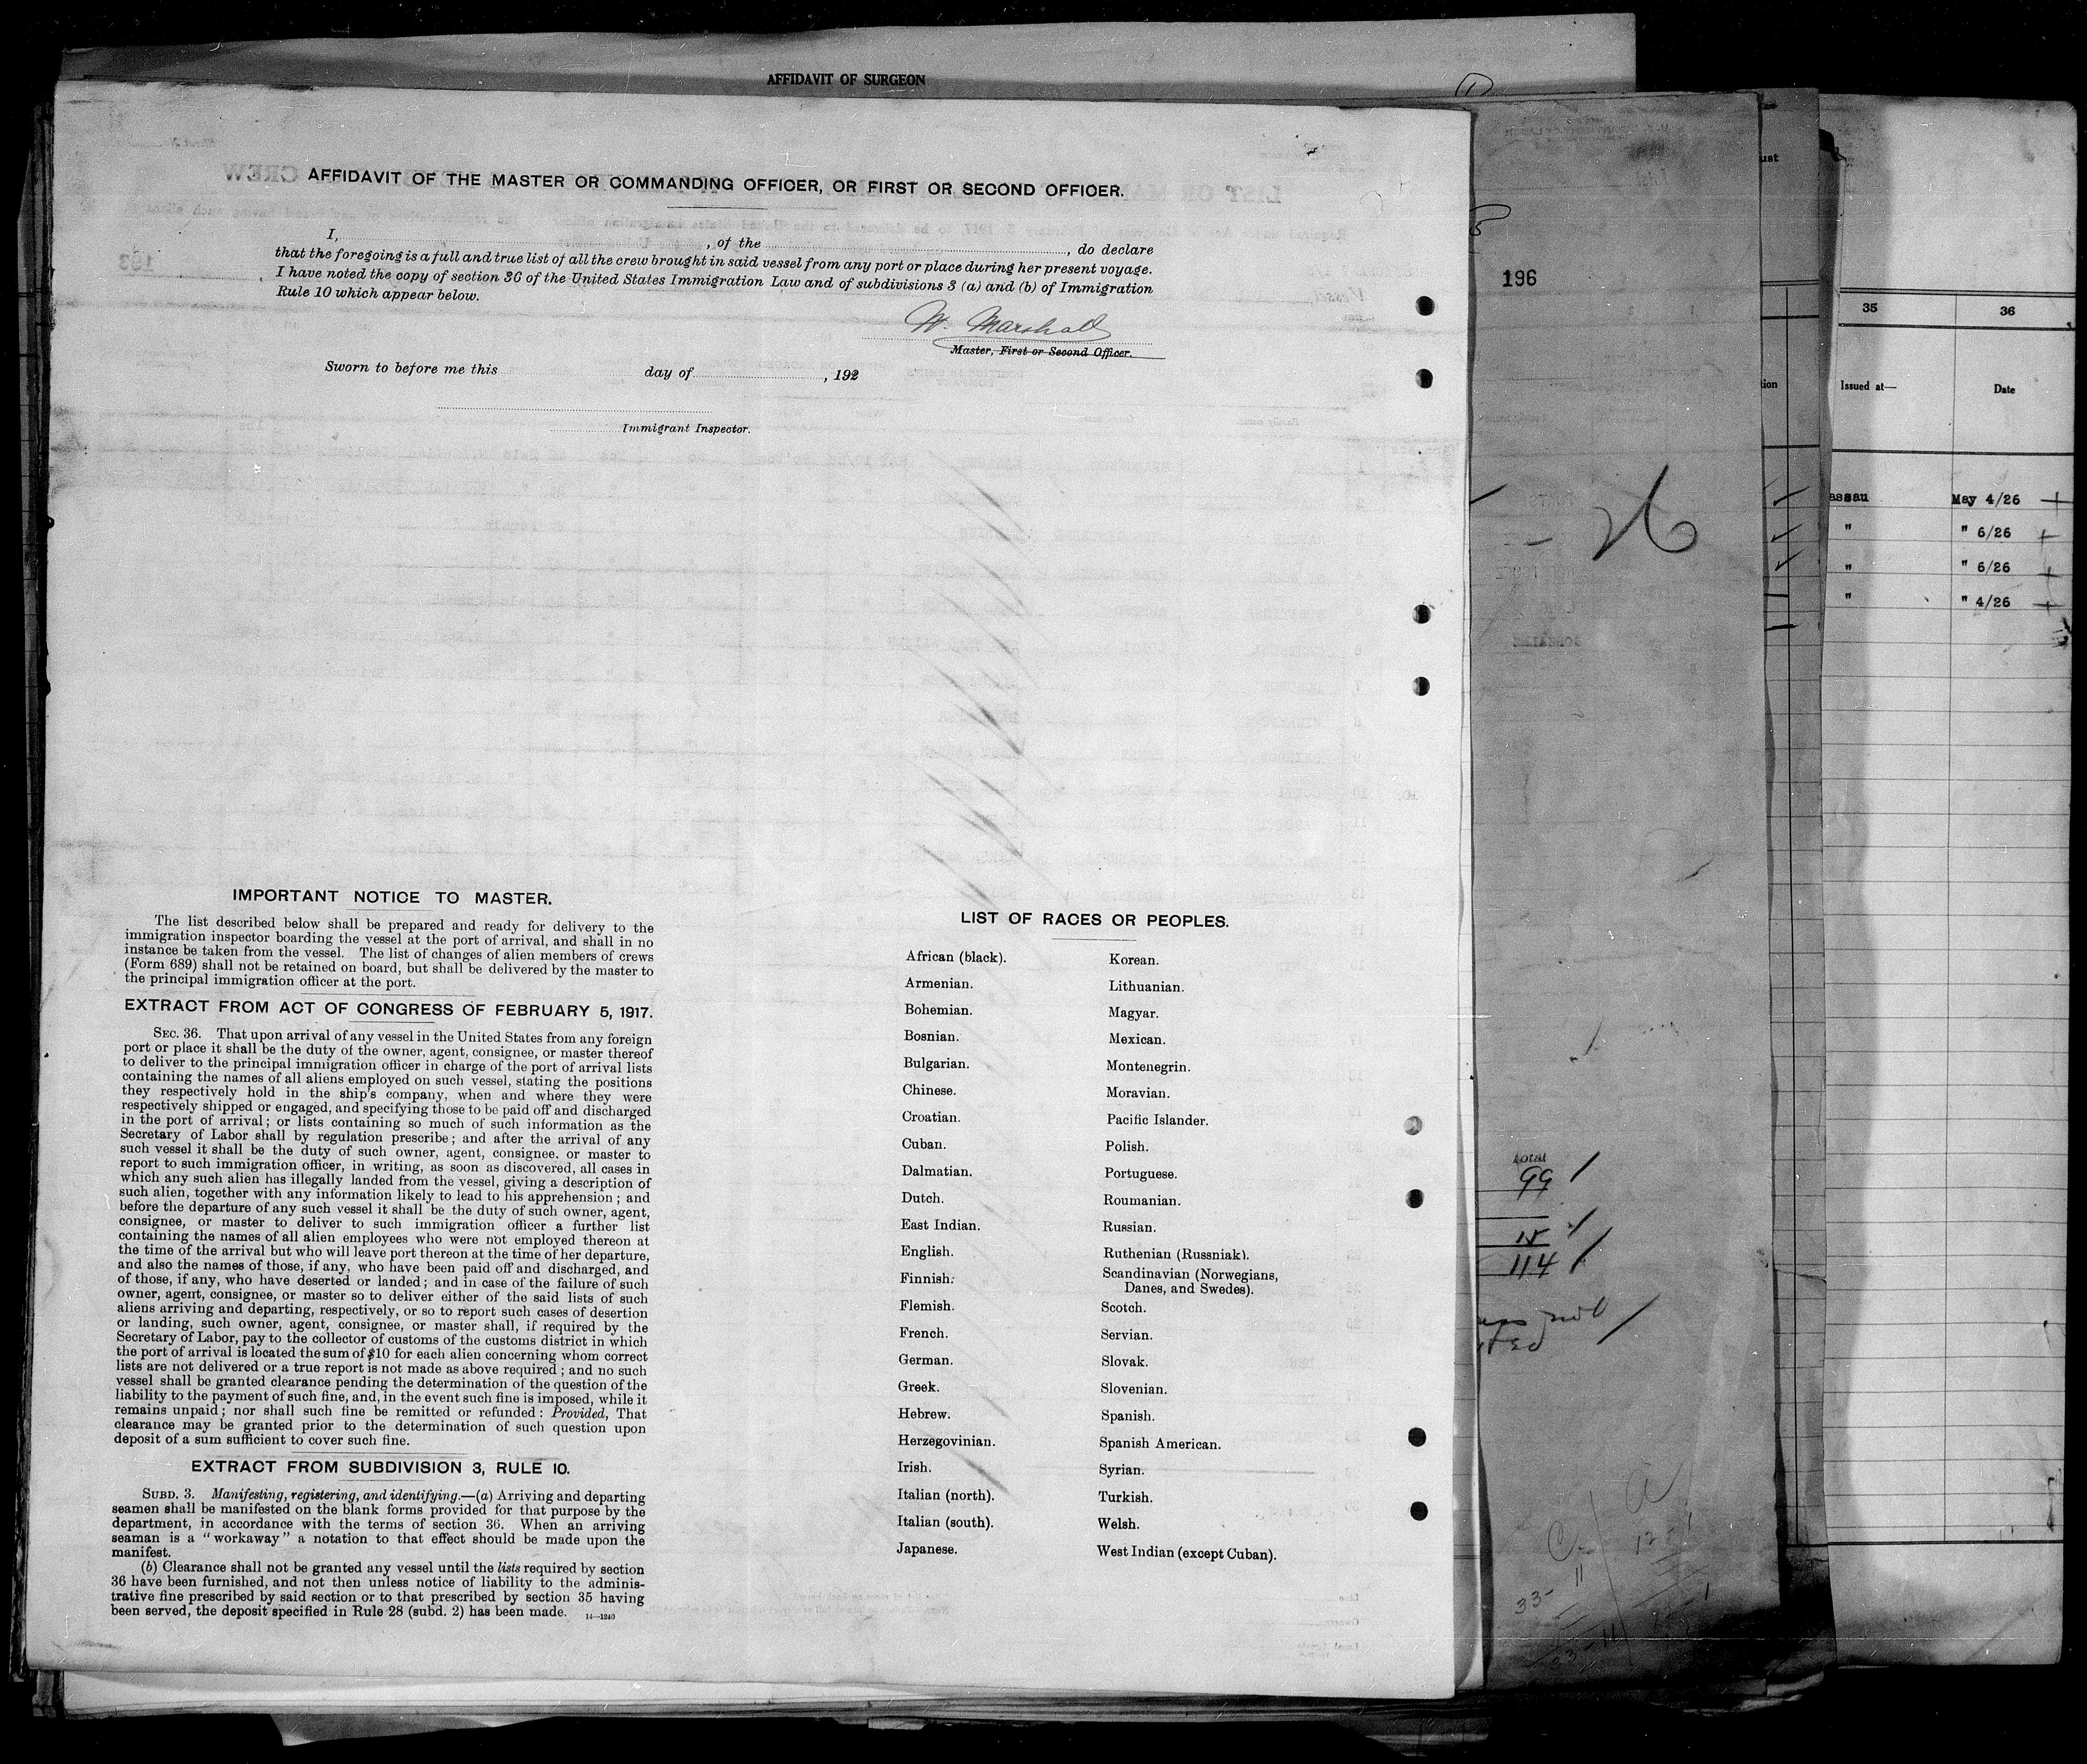 AFFIDAVIT OF SURGEON
AFFIDAVIT OF THE MASTER OR COMMANDING OFFICER, OR FIRST OR SECOND OFFICER.
I, , of the , do declare
that the foregoing is a full and true list of all the crew brought in said vessel from any port or place during her present voyage.
I have noted the copy of section 36 of the United States Immigration Law and of subdivisions 3 (a) and (b) of Immigration
Rule 10 which appear below.
W. Marshall
Master, First or Second Officer.
Sworn to before me this day of , 192
Immigrant Inspector.
IMPORTANT NOTICE TO MASTER.
The list described below shall be prepared and ready for delivery to the
immigration inspector boarding the vessel at the port of arrival, and shall in no
instance be taken from the vessel. The list of changes of alien members of crews
(Form 689) shall not be retained on board, but shall be delivered by the master to
the principal immigration officer at the port.
EXTRACT FROM ACT OF CONGRESS OF FEBRUARY 5, 1917.
SEC. 36. That upon arrival of any vessel in the United States from any foreign
port or place it shall be the duty of the owner, agent, consignee, or master thereof
to deliver to the principal immigration officer in charge of the port of arrival lists
containing the names of all aliens employed on such vessel, stating the positions
they respectively hold in the ship's company, when and where they were
respectively shipped or engaged, and specifying those to be paid off and discharged
in the port of arrival; or lists containing so much of such information as the
Secretary of Labor shall by regulation prescribe; and after the arrival of any
such vessel it shall be the duty of such owner, agent, consignee. or master to
report to such immigration officer, in writing, as soon as discovered, all cases in
which any such alien has illegally landed from the vessel, giving a description of
such alien, together with any information likely to lead to his apprehension; and
before the departure of any such vessel it shall be the duty of such owner, agent,
consignee, or master to deliver to such immigration officer a further list
containing the names of all alien employees who were not employed thereon at
the time of the arrival but who will leave port thereon at the time of her departure,
and also the names of those, if any, who have been paid off and discharged, and
of those, if any, who have deserted or landed; and in case of the failure of such
owner, agent, consignee, or master so to deliver either of the said lists of such
aliens arriving and departing, respectively, or so to report such cases of desertion
or landing, such owner, agent, consignee, or master shall, if required by the
Secretary of Labor, pay to the collector of customs of the customs district in which
the port of arrival is located the sum of $10 for each alien concerning whom correct
lists are not delivered or a true report is not made as above required; and no such
vessel shall be granted clearance pending the determination of the question of the
liability to the payment of such fine, and, in the event such fine is imposed, while it
remains unpaid; nor shall such fine be remitted or refunded: Provided, That
clearance may be granted prior to the determination of such question upon
deposit of a sum sufficient to cover such fine.
EXTRACT FROM SUBDIVISION 3, RULE 10.
SUBD. 3. Manifesting, registering, and identifying.—(a) Arriving and departing
seamen shall be manifested on the blank forms provided for that purpose by the
department, in accordance with the terms of section 36. When an arriving
seaman is a "workaway" a notation to that effect should be made upon the
manifest.
(b) Clearance shall not be granted any vessel until the lists required by section
36 have been furnished, and not then unless notice of liability to the adminis-
trative fine prescribed by said section or to that prescribed by section 35 having
been served, the deposit specified in Rule 28 (subd. 2) has been made. 14—1240
LIST OF RACES OR PEOPLES.
African (black). Korean.
Armenian. Lithuanian.
Bohemian. Magyar.
Bosnian. Mexican.
Bulgarian. Montenegrin.
Chinese. Moravian.
Croatian. Pacific Islander.
Cuban. Polish.
Dalmatian. Portuguese.
Dutch. Roumanian.
East Indian. Russian.
English. Ruthenian (Russniak).
Finnish. Scandinavian (Norwegians,
Danes, and Swedes).
Flemish. Scotch.
French. Servian.
German. Slovak.
Greek. Slovenian.
Hebrew. Spanish.
Herzegovinian. Spanish American.
Irish. Syrian.
Italian (north). Turkish.
Italian (south). Welsh.
Japanese. West Indian (except Cuban).
196
26
total
99
15
114
35 36
Issued at— Date
assau May 4/26
" " 6/26
" " 6/26
" " 4/26